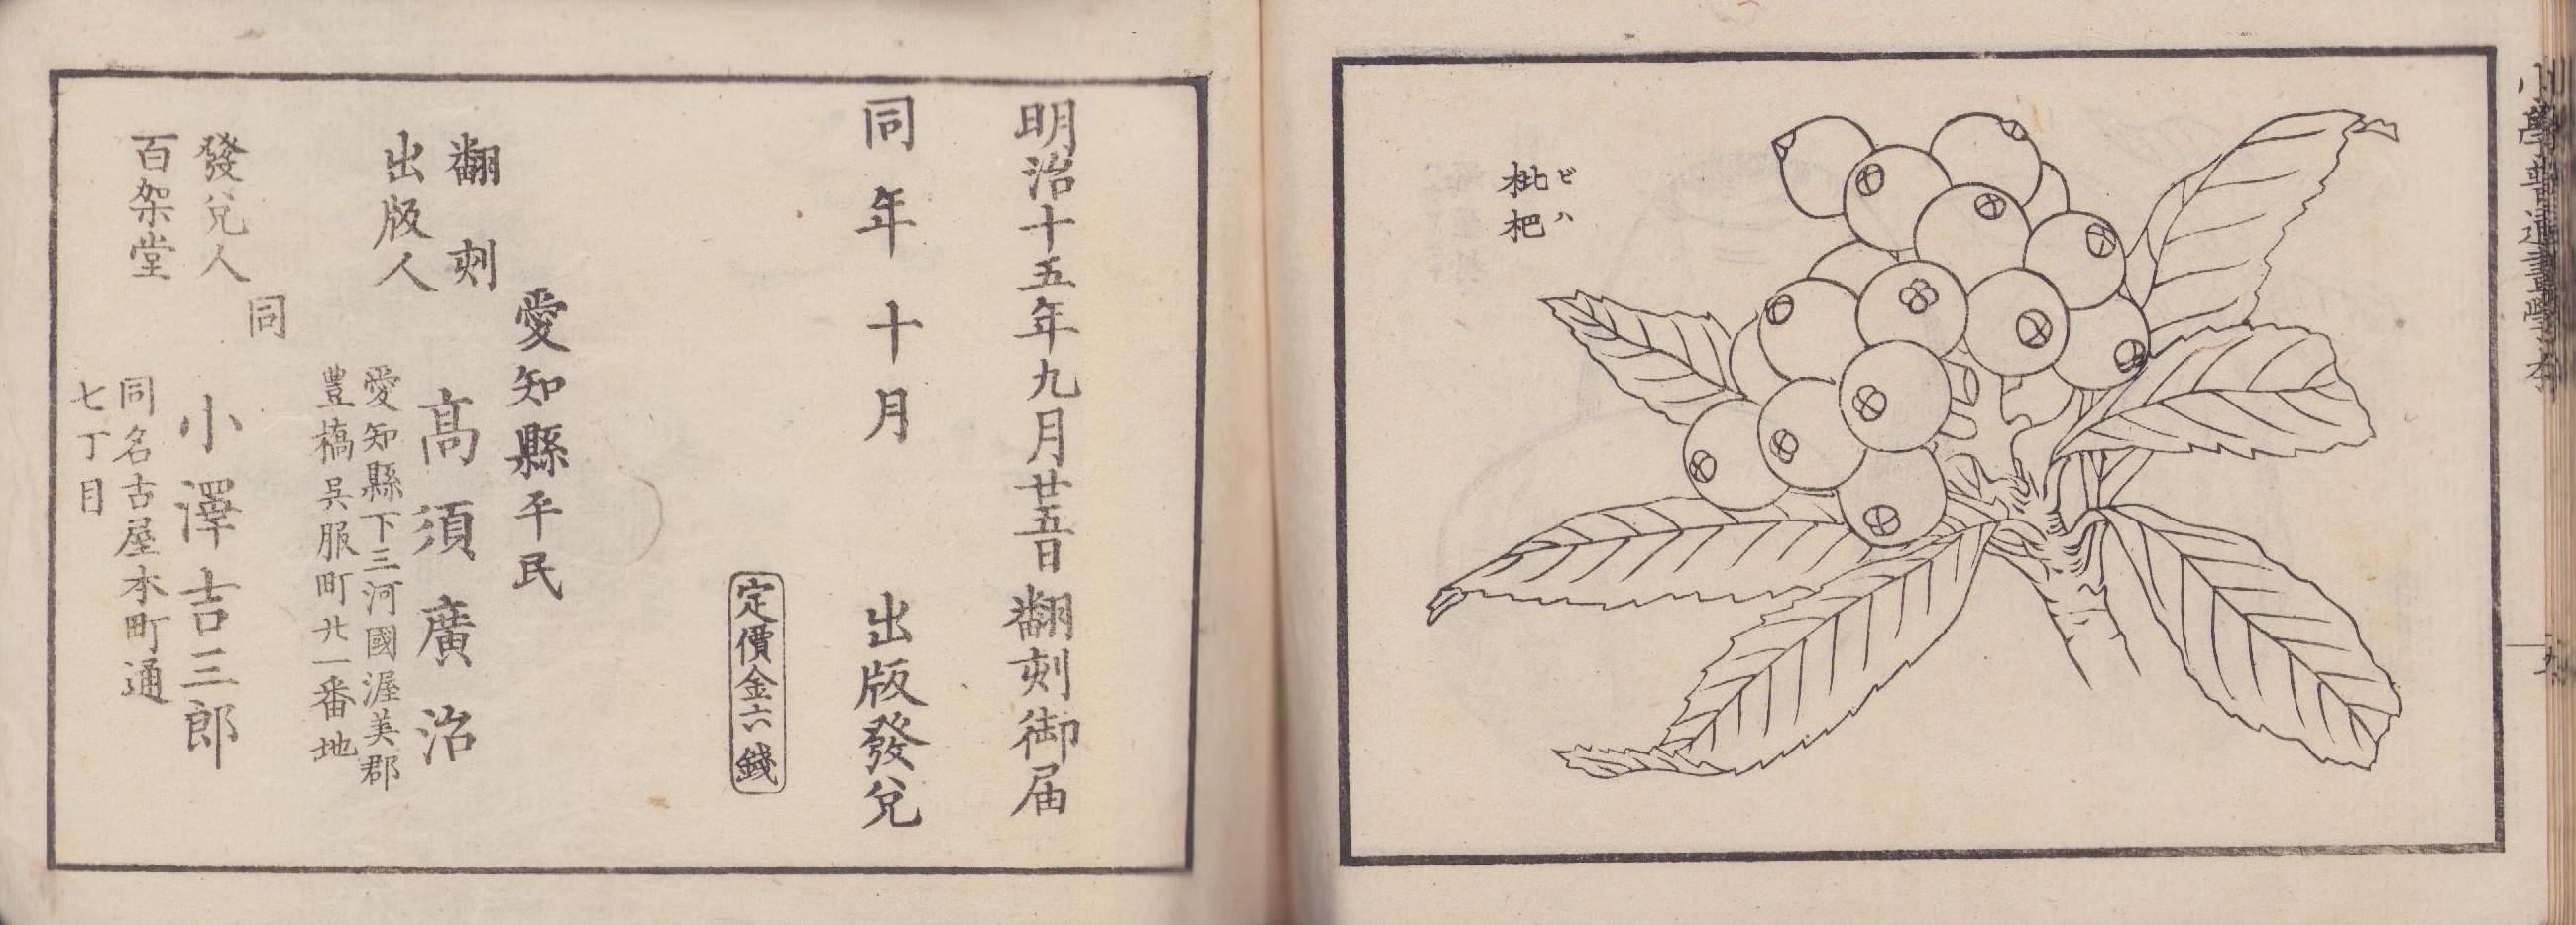 小學普通畫學本
枇杷
ビハ
明治十五年九月廿五日翻刻御届
同年十月 出版發兌
定價金六錢
愛知縣平民
翻刻
出版人
髙須廣治
愛知縣下三河國渥美郡
豊橋呉服町廿一番地
同
發兌人
百架堂
小澤吉三郎
同名古屋本町通
七丁目